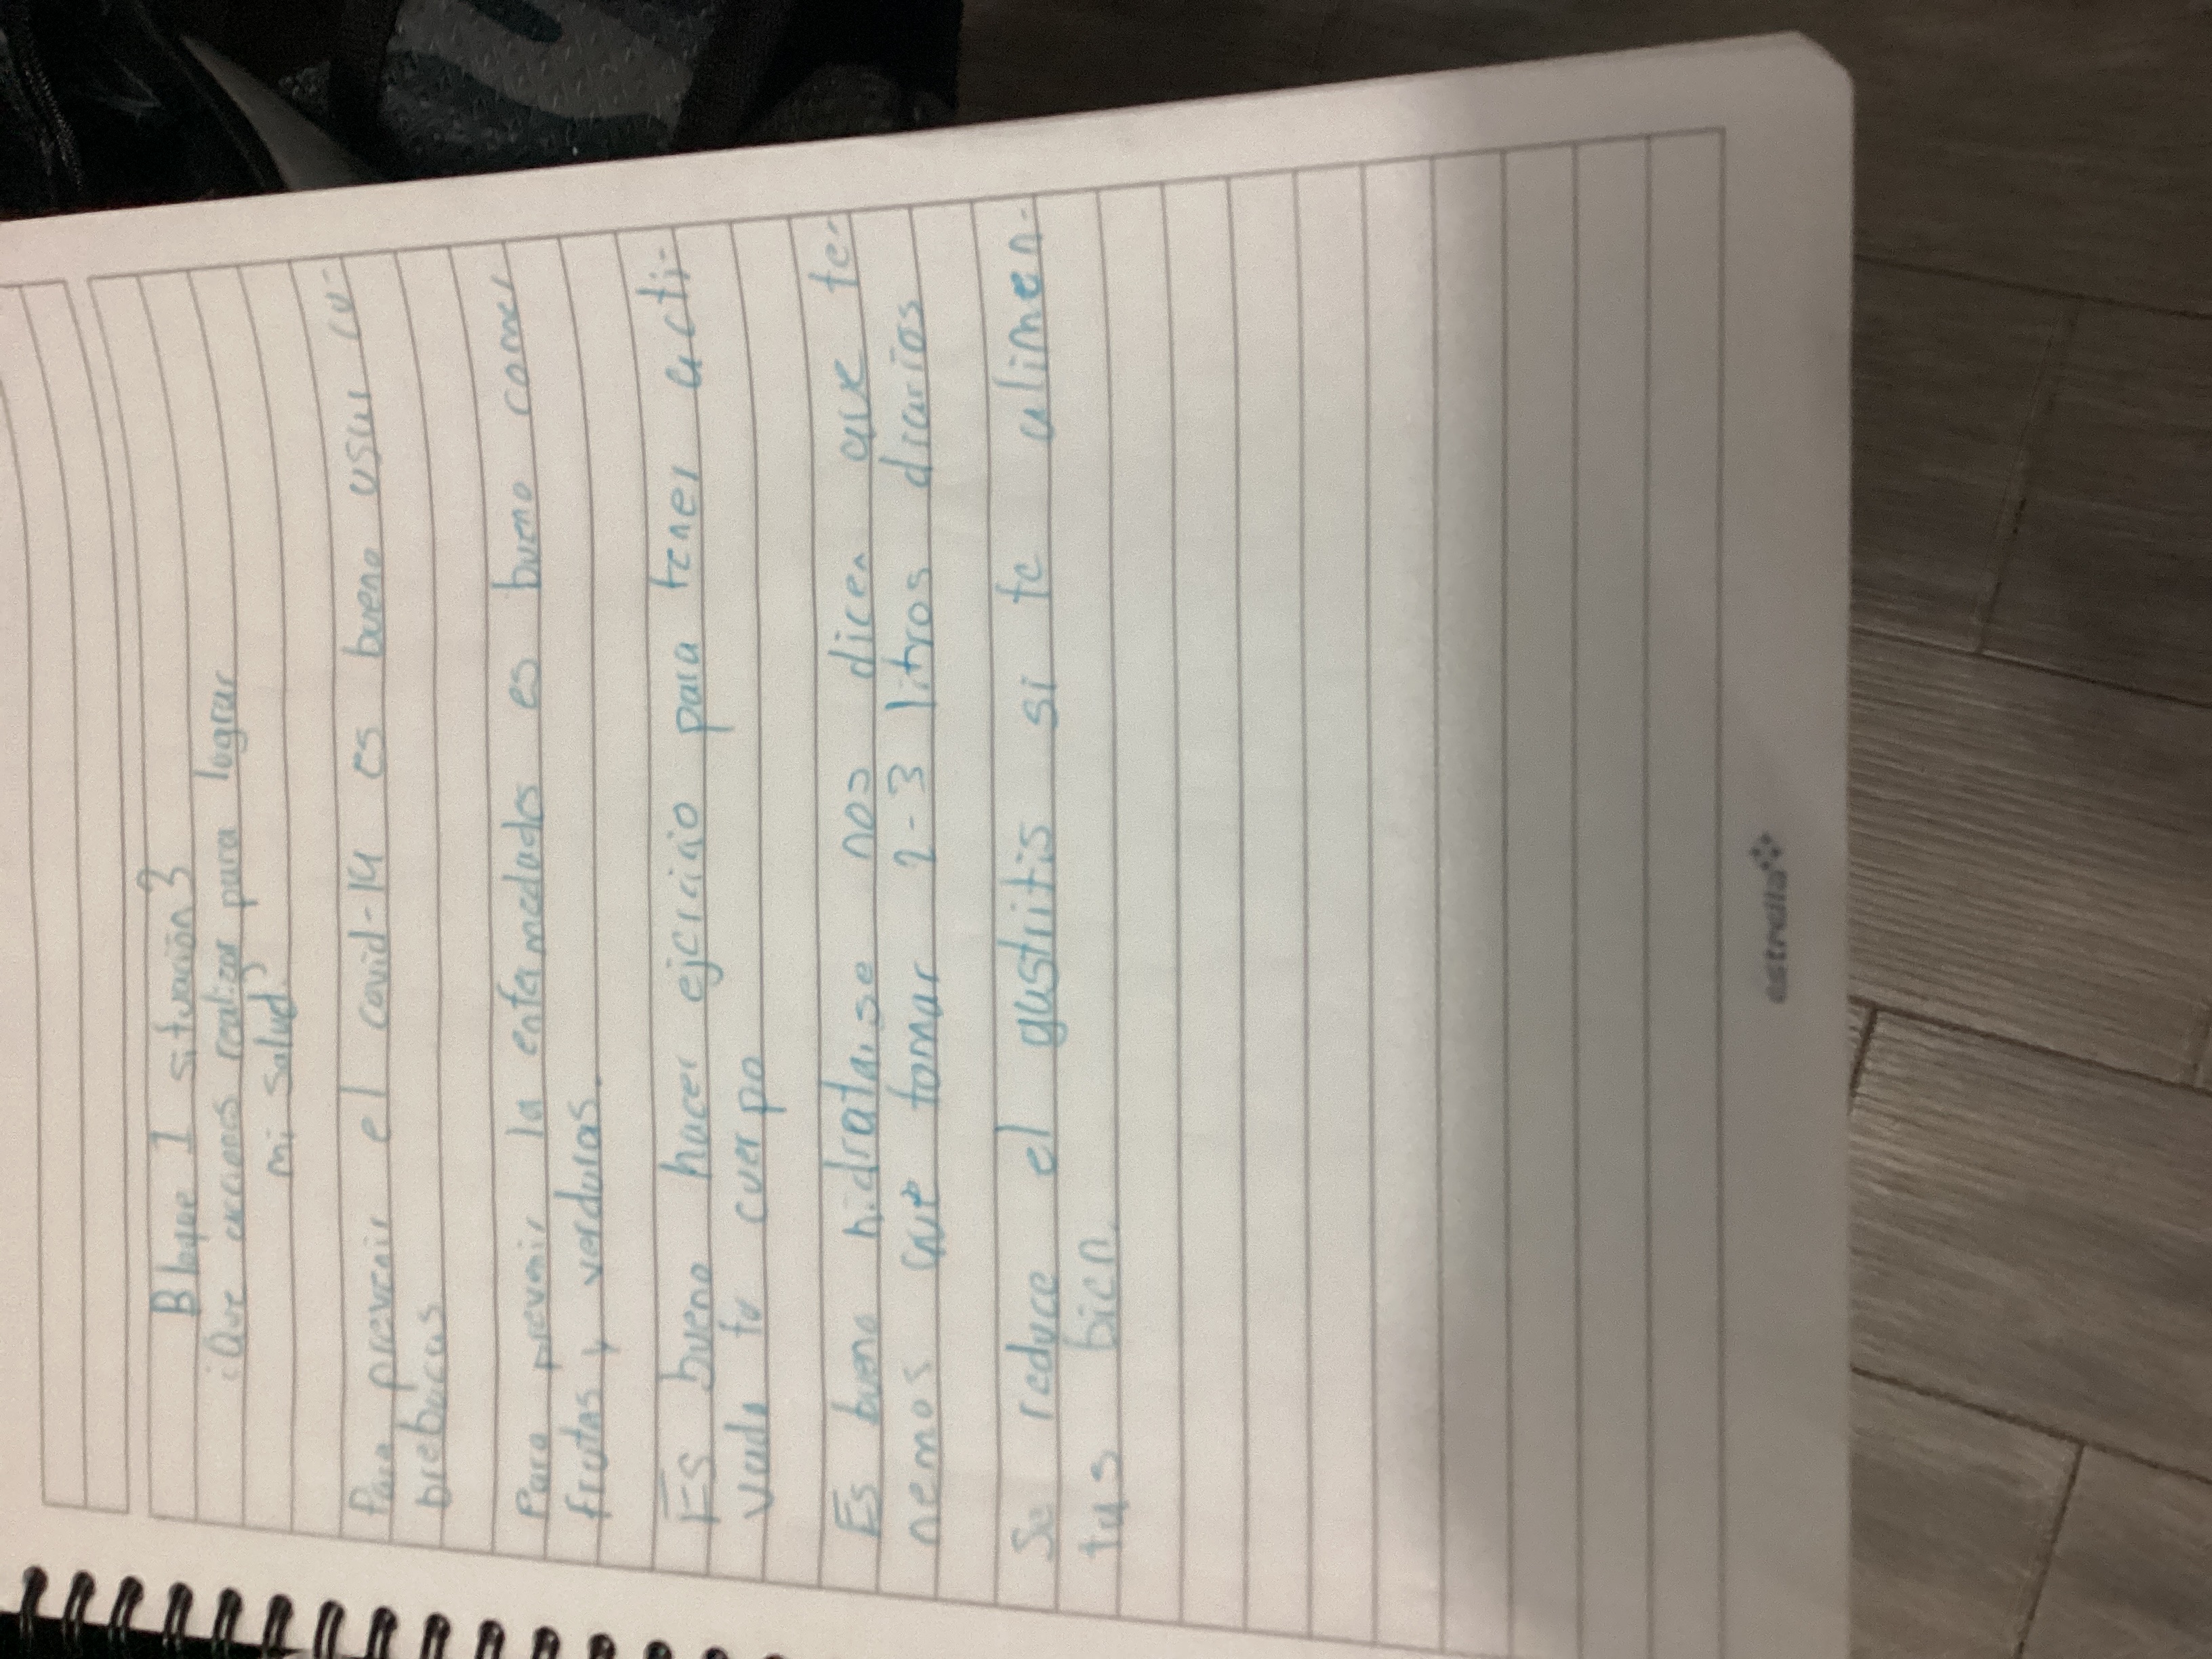 Bloque 1 situación 3
¿Que acciones realizar para lograr
mi salud?
Para prevenir el covid-19 es bueno usar cu-
brebocas
Para prevenir la enfermedades es bueno comer
frutas y verduras.
Es bueno hacer ejercicio para tener acti-
vado tu cuerpo
Es bueno hidratarse nos dicen que te-
nemos que tomar 2-3 litros diarios
Se reduce el gastritis si te alimen-
tas bien.
estrella